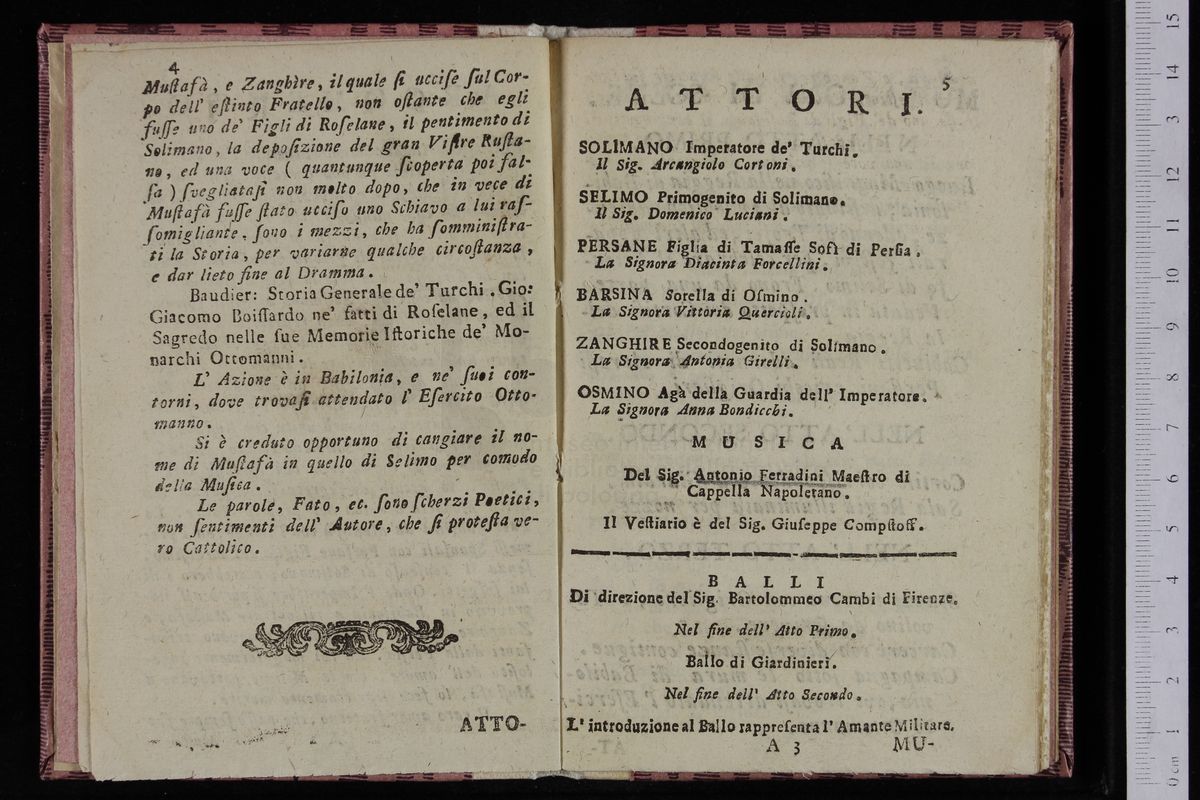 4
Muſtafà, e Zanghìre, il quale ſi ucciſe ſul Cor-
po dell' eſtinto Fratello, non oſtante che egli
fuſſe uno de' Figli di Roſelane, il pentimento di
Solimano, la depoſizione del gran Viſire Ruſta-
no, ed una voce ( quantunque ſcoperta poi fal-
ſa ) ſvegliataſi non molto dopo, che in vece di
Muſtafà fuſſe ſtato ucciſo uno Schiavo a lui raſ-
ſomigliante, ſono i mezzi, che ha ſomminiſtra-
ti la Storia, per variarne qualche circoſtanza,
e dar lieto fine al Dramma.
Baudier: Storia Generale de' Turchi. Gio:
Giacomo Boiſſardo ne' fatti di Roſelane, ed il
Sagredo nelle ſue Memorie Iſtoriche de' Mo-
narchi Ottomanni.
L' Azione è in Babilonia, e ne' ſuoi con-
torni, dove trovaſi attendato l' Eſercito Otto-
manno.
Si è creduto opportuno di cangiare il no-
me di Muſtafà in quello di Selimo per comodo
della Muſica.
Le parole, Fato, ec. ſono ſcherzi Poetici,
non ſentimenti dell' Autore, che ſi proteſta ve-
ro Cattolico.
ATTO-
5
ATTORI.
SOLIMANO Imperatore de' Turchi.
Il Sig. Arcangiolo Cortoni.
SELIMO Primogenito di Solimano.
Il Sig. Domenico Luciani.
PERSANE Figlia di Tamaſſe Sofì di Perſia.
La Signora Diacinta Forcellini.
BARSINA Sorella di Oſmino.
La Signora Vittoria Quercioli.
ZANGHIRE Secondogenito di Solimano.
La Signora Antonia Girelli.
OSMINO Agà della Guardia dell' Imperatore.
La Signora Anna Bondicchi.
MUSICA
Del Sig. Antonio Ferradini Maeſtro di
Cappella Napoletano.
Il Veſtiario è del Sig. Giuſeppe Compſtoff.
BALLI
Di direzione del Sig. Bartolommeo Cambi di Firenze.
Nel fine dell' Atto Primo.
Ballo di Giardinieri.
Nel fine dell' Atto Secondo.
L' introduzione al Ballo rappreſenta l' Amante Militare.
A 3 MU-
0 cm 1 2 3 4 5 6 7 8 9 10 11 12 13 14 15